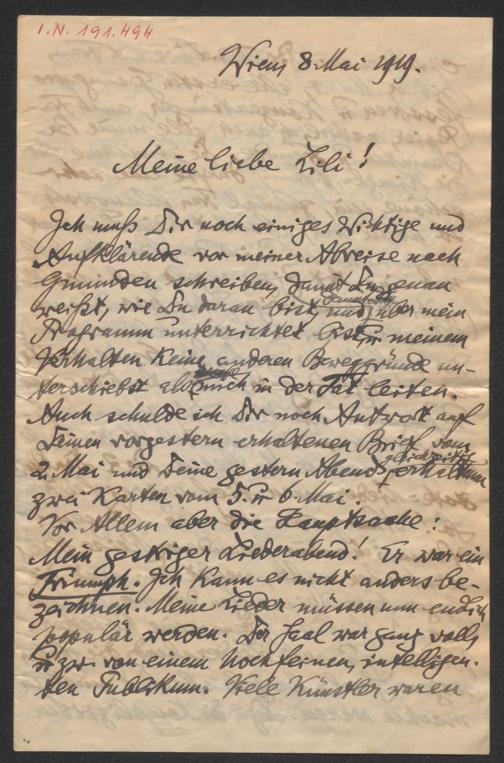 I.N. 191.494
Wien, 8. Mai 1919.
Meine liebe Lili!
Ich muß Dir noch einiges Wichtige und
Aufklärende vor meiner Abreise nach
Gmunden schreiben, damit Du genau
weißt, wie Du daran bist, und über mein
Programm unterrichtet bist, u. meinem
Verhalten keine anderen Beweggründe un-
terschiebst als mich in der Tat leiten.
Auch schulde ich Dir noch Antwort auf
Deinen vorgestern erhaltenen Brief vom
2. Mai und Deine gestern Abend gleichzeitig erhaltenen
zwei Karten vom 5. u. 6. Mai.
Vor Allem aber die Hauptsache:
Mein gestriger Liederabend! Er war ein
Triumph. Ich kann es nicht anders be-
zeichnen. Meine Lieder müssen nun endlich
populär werden. Der Saal war ganz voll,
u. zw. von einem hochfeinen, intelligen-
ten Publikum. Viele Künstler waren